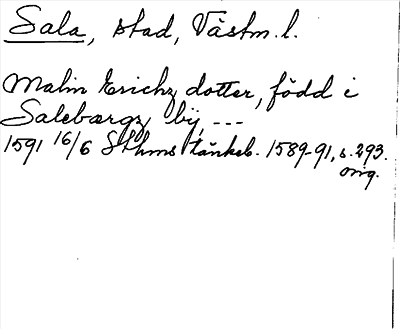 Sala, stad, Västm. l.
Malin Erichz dotter, född i
Salebergz bÿ, ---
1591 16/6 Sthms tänkeb. 1589-91, s. 293.
orig.